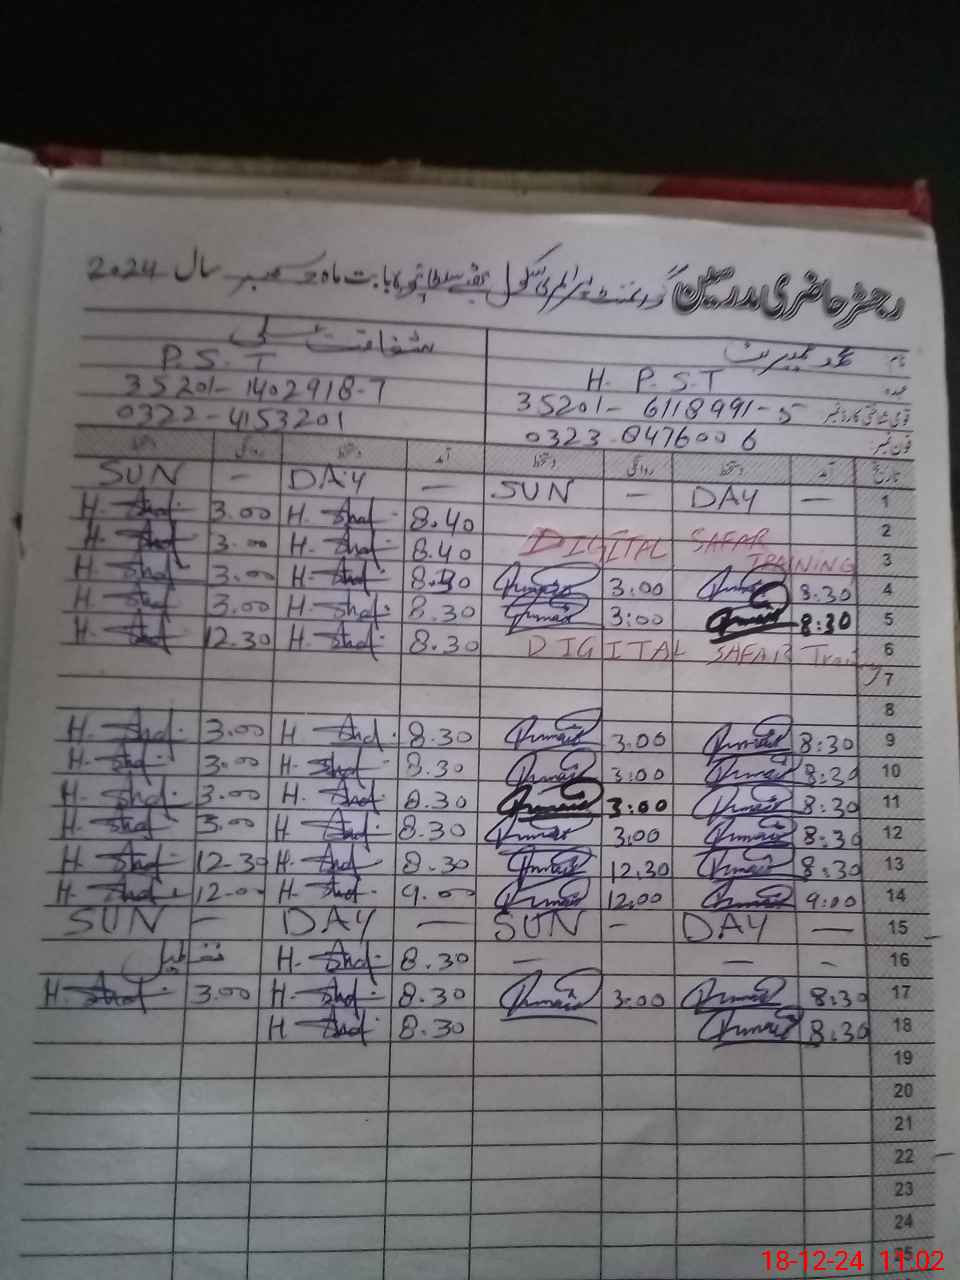 رجسٹر حاضری مدرسین گورنمنٹ پرائمری سکول بابت ماہ دسمبر سال 2024
نام شفاقت علی
عہدہ H. P. S. T P. S. T
قومی شناختی کارڈ نمبر 35201-6118991-5 35201-1402918-7
فون نمبر: 0323-8476006 0322-4153201
تاریخ آمد دستخط روانگی دستخط آمد دستخط روانگی دستخط
1 — DAY — SUN — DAY — SUN
2 DIGITAL SAFAR 8.40 H. Shaf. 3.00 H. Shaf.
3 TRAINING 8.40 H. Shaf. 3.00 H. Shaf.
4 8:30 3:00 8.30 H. Shaf. 3.00 H. Shaf.
5 8:30 3:00 8.30 H. Shaf. 3.00 H. Shaf.
6 DIGITAL SAFAR Training 8.30 H. Shaf. 12.30 H. Shaf.
7
8
9 8:30 3.00 8.30 H. Shaf. 3.00 H. Shaf.
10 8:30 3:00 8.30 H. Shaf. 3.00 H. Shaf.
11 8:30 3:00 8.30 H. Shaf. 3.00 H. Shaf.
12 8:30 3:00 8.30 H. Shaf. 3.00 H. Shaf.
13 8:30 12.30 8.30 H. Shaf. 12.30 H. Shaf.
14 9:00 12.00 9.00 H. Shaf. 12.00 H. Shaf.
15 — DAY — SUN — DAY — SUN
16 — — — 8.30 H. Shaf. تعطیل
17 8:30 3:00 8.30 H. Shaf. 3.00 H. Shaf.
18 8:30 8.30 H. Shaf.
19
20
21
22
23
24
25
18-12-24 11:02